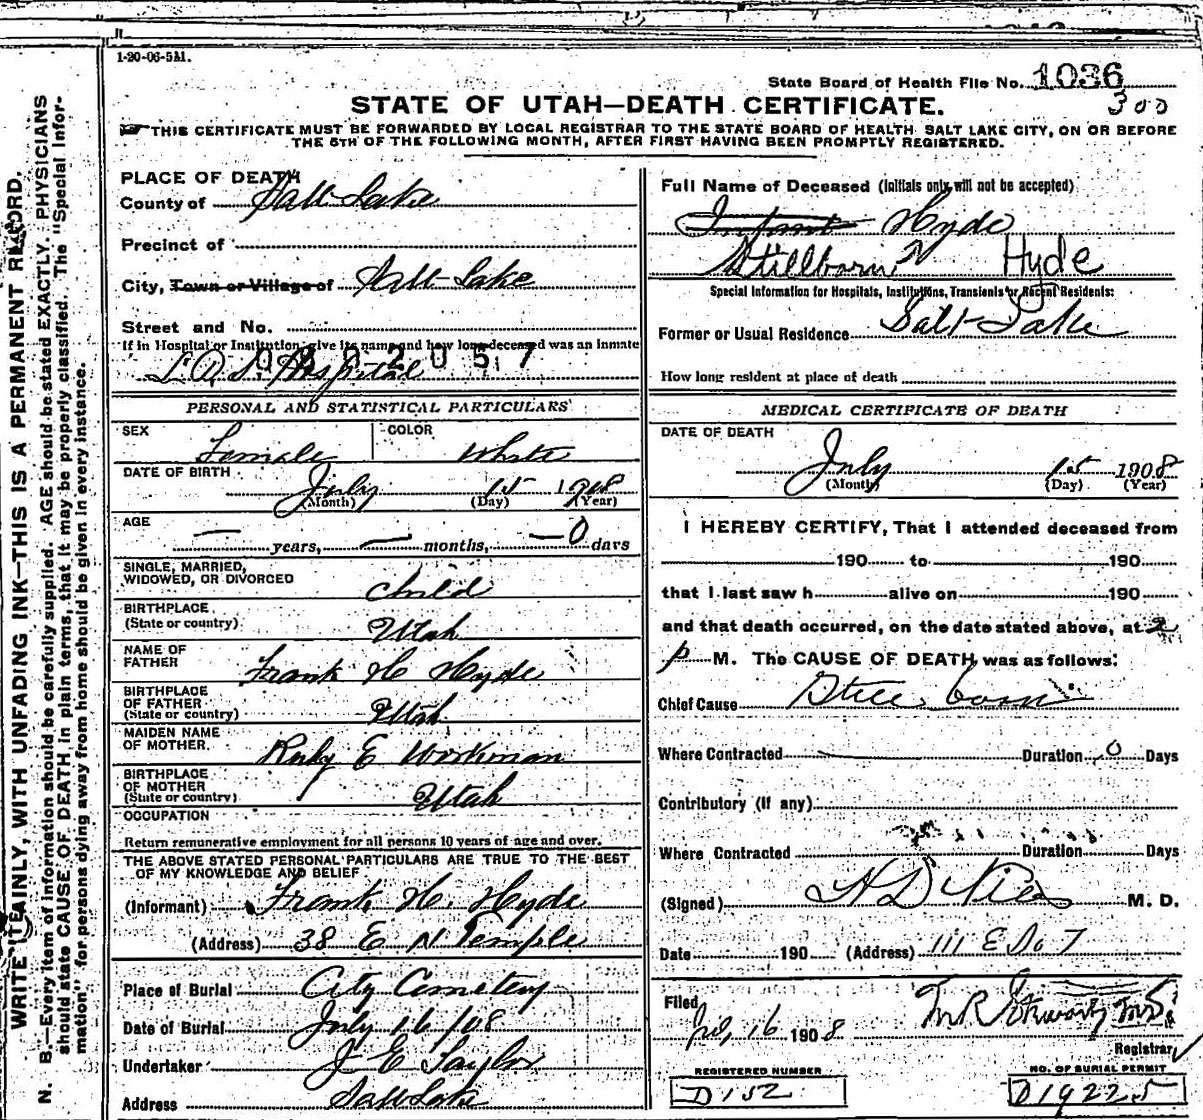 1-20-06-5M.
State Board of Health File No. 1036
300
STATE OF UTAH—DEATH CERTIFICATE.
THIS CERTIFICATE MUST BE FORWARDED BY LOCAL REGISTRAR TO THE STATE BOARD OF HEALTH SALT LAKE CITY, ON OR BEFORE
THE 5TH OF THE FOLLOWING MONTH, AFTER FIRST HAVING BEEN PROMPTLY REGISTERED.
WRITE PLAINLY, WITH UNFADING INK—THIS IS A PERMANENT RECORD.
N. B.—Every item of information should be carefully supplied. AGE should be stated EXACTLY. PHYSICIANS
should state CAUSE OF DEATH in plain terms, that it may be properly classified. The "Special Infor-
mation" for persons dying away from home should be given in every instance.
PLACE OF DEATH
County of Salt Lake
Precinct of
City, Town or Village of Salt Lake
Street and No.
If in Hospital or Institution, give its name and how long deceased was an inmate
L.D.S. Hospital
PERSONAL AND STATISTICAL PARTICULARS
SEX Female COLOR White
DATE OF BIRTH July 15 1908
(Month) (Day) (Year)
AGE — years, — months, — 0 days
SINGLE, MARRIED,
WIDOWED, OR DIVORCED child
BIRTHPLACE
(State or country) Utah
NAME OF
FATHER Frank H Hyde
BIRTHPLACE
OF FATHER
(State or country) Utah
MAIDEN NAME
OF MOTHER. Ruby E Workman
BIRTHPLACE
OF MOTHER
(State or country) Utah
OCCUPATION
Return remunerative employment for all persons 10 years of age and over.
THE ABOVE STATED PERSONAL PARTICULARS ARE TRUE TO THE BEST
OF MY KNOWLEDGE AND BELIEF
(Informant) Frank H. Hyde
(Address) 38 E N Temple
Place of Burial City Cemetery
Date of Burial July 16/08
Undertaker J E Taylor
Address Salt Lake
Full Name of Deceased (Initials only will not be accepted)
Infant Hyde
Stillborn Hyde
Special Information for Hospitals, Institutions, Transients or Recent Residents:
Former or Usual Residence Salt Lake
How long resident at place of death
MEDICAL CERTIFICATE OF DEATH
DATE OF DEATH
July 15 1908
(Month) (Day) (Year)
I HEREBY CERTIFY, That I attended deceased from
190 to 190
that I last saw h alive on 190
and that death occurred, on the date stated above, at 2
p M. The CAUSE OF DEATH was as follows:
Chief Cause Still born
Where Contracted Duration 0 Days
Contributory (If any)
Where Contracted Duration Days
(Signed) M. D.
Date 190 (Address) 111 E So T
Filed
July 16 1908
Registrar
REGISTERED NUMBER
D152
NO. OF BURIAL PERMIT
D19225